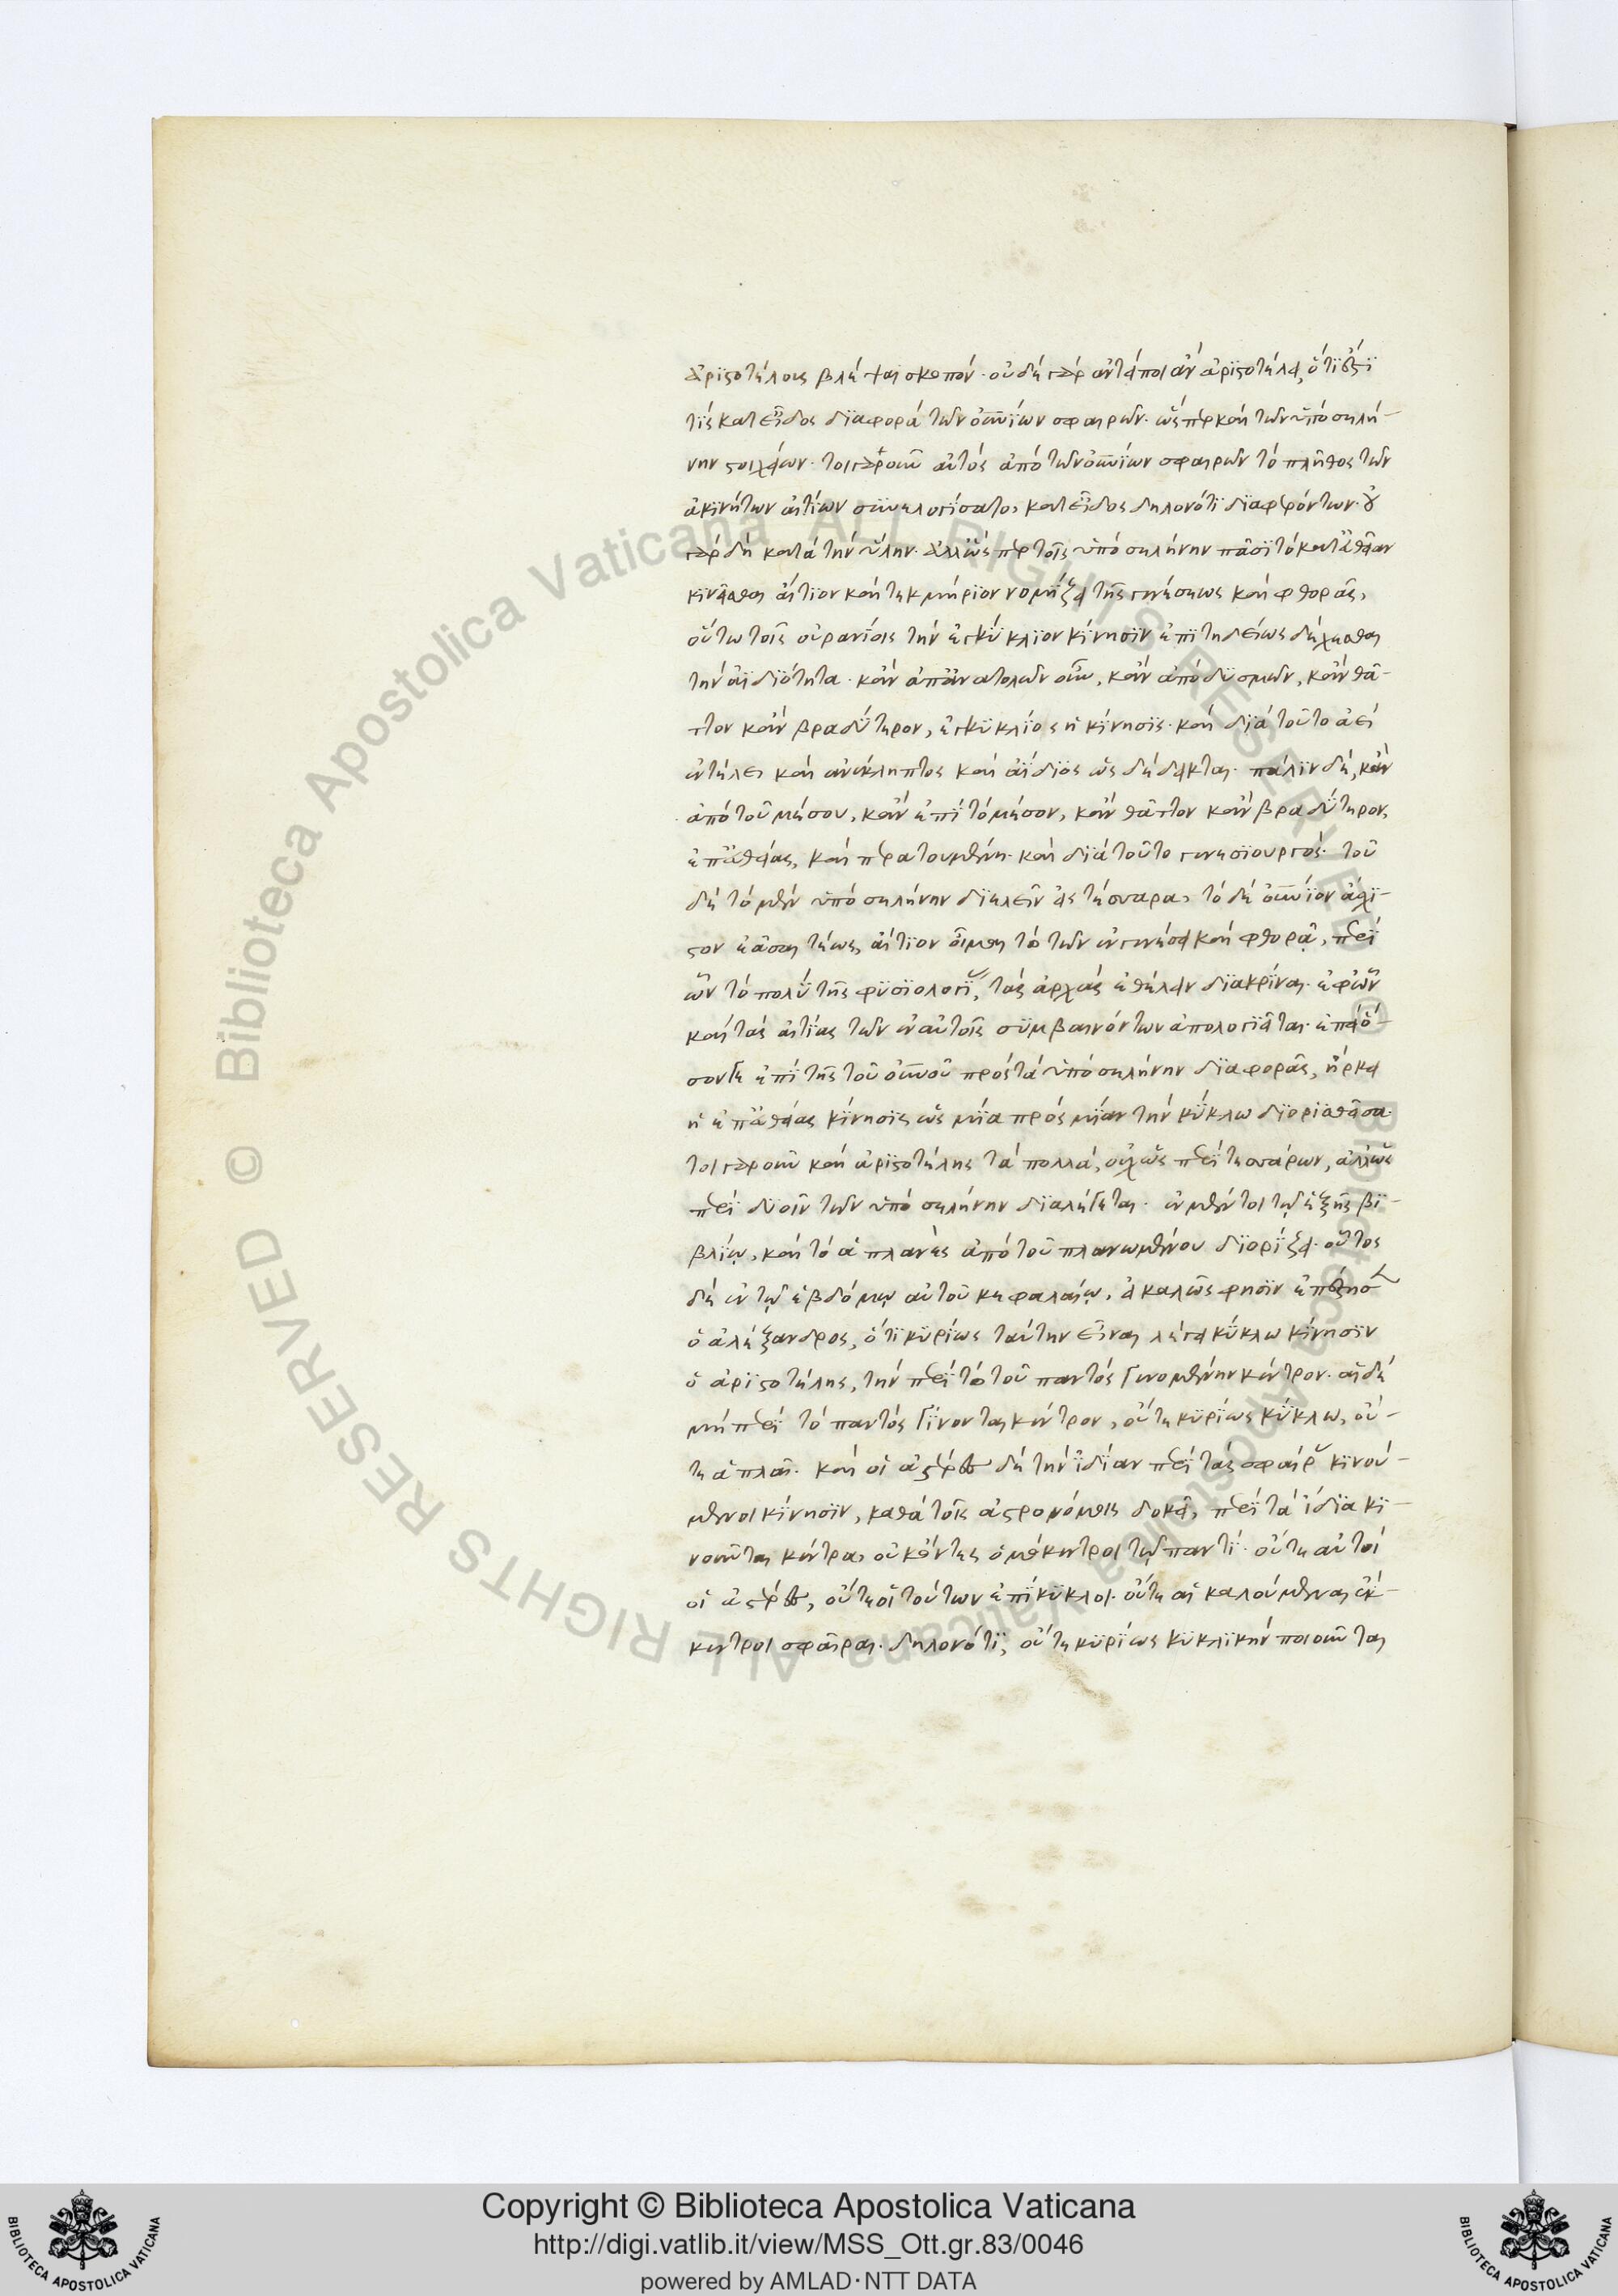 ἀριστοτέλους βλέψαι σκοπόν· οὐδὲ γὰρ ἀντείποι ἂν ἀριστοτέλει, ὅτι ἐστί
τις κατ εἶδος διαφορὰ τῶν οὐνίων σφαιρῶν· ὥσπερ καὶ τῶν ὑπὸ σελή-
νην στοιχείων· τοιγαροῦν αὐτὸς ἀπὸ τῶν οὐνίων σφαιρῶν τὸ πλῆθος τῶν
ἀκινήτων αἰτίων συνελογίσατο, κατ εἶδος δηλονότι διαφερόντων· οὐ
γὰρ δὴ κατὰ τὴν ὕλην· ἀλλ ὥσπερ τοῖς ὑπὸ σελήνην πᾶσι τὸ κατ εὐθεῖαν
κινεῖσθαι αἴτιον καὶ τεκμήριον νομίζει τῆς γενέσεως καὶ φθορᾶς,
οὕτω τοῖς οὐρανίοις τὴν ἐγκύκλιον κίνησιν ἐπιτηδείως δέχεσθαι
τὴν ἀϊδιότητα· κἂν ἀπ ἀνατολῶν οὖν, κἂν ἀπὸ δυσμῶν, κἂν θᾶ-
ττον κἂν βραδύτερον, ἐγκύκλιος ἡ κίνησις· καὶ διὰ τοῦτο ἀεὶ
ἐντελὲς καὶ ἀνέκλειπτος καὶ ἀΐδιος ὡς δέδεικται· πάλιν δὲ, κἂν
ἀπὸ τοῦ μέσου, κἂν ἐπὶ τὸ μέσον, κἂν θᾶττον κἂν βραδύτερον,
ἐπ εὐθείας, καὶ περατουμένη· καὶ διὰ τοῦτο γενεσιουργός· τοῦ
δὲ τὸ μὲν ὑπὸ σελήνην διελεῖν εἰς τέσσαρα, τὸ δὲ οὐνίον ἀχώρι-
στον ἐᾶσαι τέως, αἴτιον οἶμαι τὸ τῶν ἐν γενέσει καὶ φθορᾷ, περὶ
ὧν τὸ πολὺ τῆς φυσιολογίας, τὰς ἀρχὰς ἐθέλειν διακρίναι· ἐφ ὧν
καὶ τὰς αἰτίας τῶν ἐν αὐτοῖς συμβαινόντων ἀπολογεῖται· ἐπεὶ ὅ-
σον γε ἐπὶ τῆς τοῦ οὐνοῦ πρὸς τὰ ὑπὸ σελήνην διαφορᾶς, ἤρκει
ἡ ἐπ εὐθείας κίνησις ὡς μία πρὸς μίαν τὴν κύκλω διορισθεῖσα·
τοιγαροῦν καὶ ἀριστοτέλης τὰ πολλὰ, οὐχ ὡς περὶ τεσσάρων, ἀλλ ὡς
περὶ δυοῖν τῶν ὑπὸ σελήνην διαλέγεται· ἐν μέντοι τῷ ἑξῆς βι-
βλίῳ, καὶ τὸ ἀπλανὲς ἀπὸ τοῦ πλανωμένου διορίζει· οὗτος
δὲ ἐν τῷ ἑβδόμῳ αὐτοῦ κεφαλαίῳ, εἰ καλῶς φησὶν
ὁ ἀλέξανδρος, ὅτι κυρίως ταύτην εἶναι λέγει κύκλω κίνησιν
ὁ ἀριστοτέλης, τὴν περὶ τὸ τοῦ παντὸς γινομένην κέντρον· αἱ δὲ
μὴ περὶ τὸ παντὸς γίνονται κέντρον, οὔτε κυρίως κύκλω, οὔ-
τε ἁπλαῖ· καὶ οἱ ἀστέρες δὲ τὴν ἰδίαν περὶ τὰς σφαίρας κινού-
μενοι κίνησιν, καθὰ τοῖς ἀστρονόμοις δοκεῖ, περὶ τὰ ἴδια κι-
νοῦνται κέντρα, οὐκ ὄντες ὁμόκεντροι τῷ παντί· οὔτε αὐτοὶ
οἱ ἀστέρες, οὔτε οἱ τούτων ἐπίκυκλοι· οὔτε αἱ καλούμεναι ἔκ-
κεντροι σφαῖραι· δηλονότι, οὔτε κυρίως κυκλικὴν ποιοῦνται